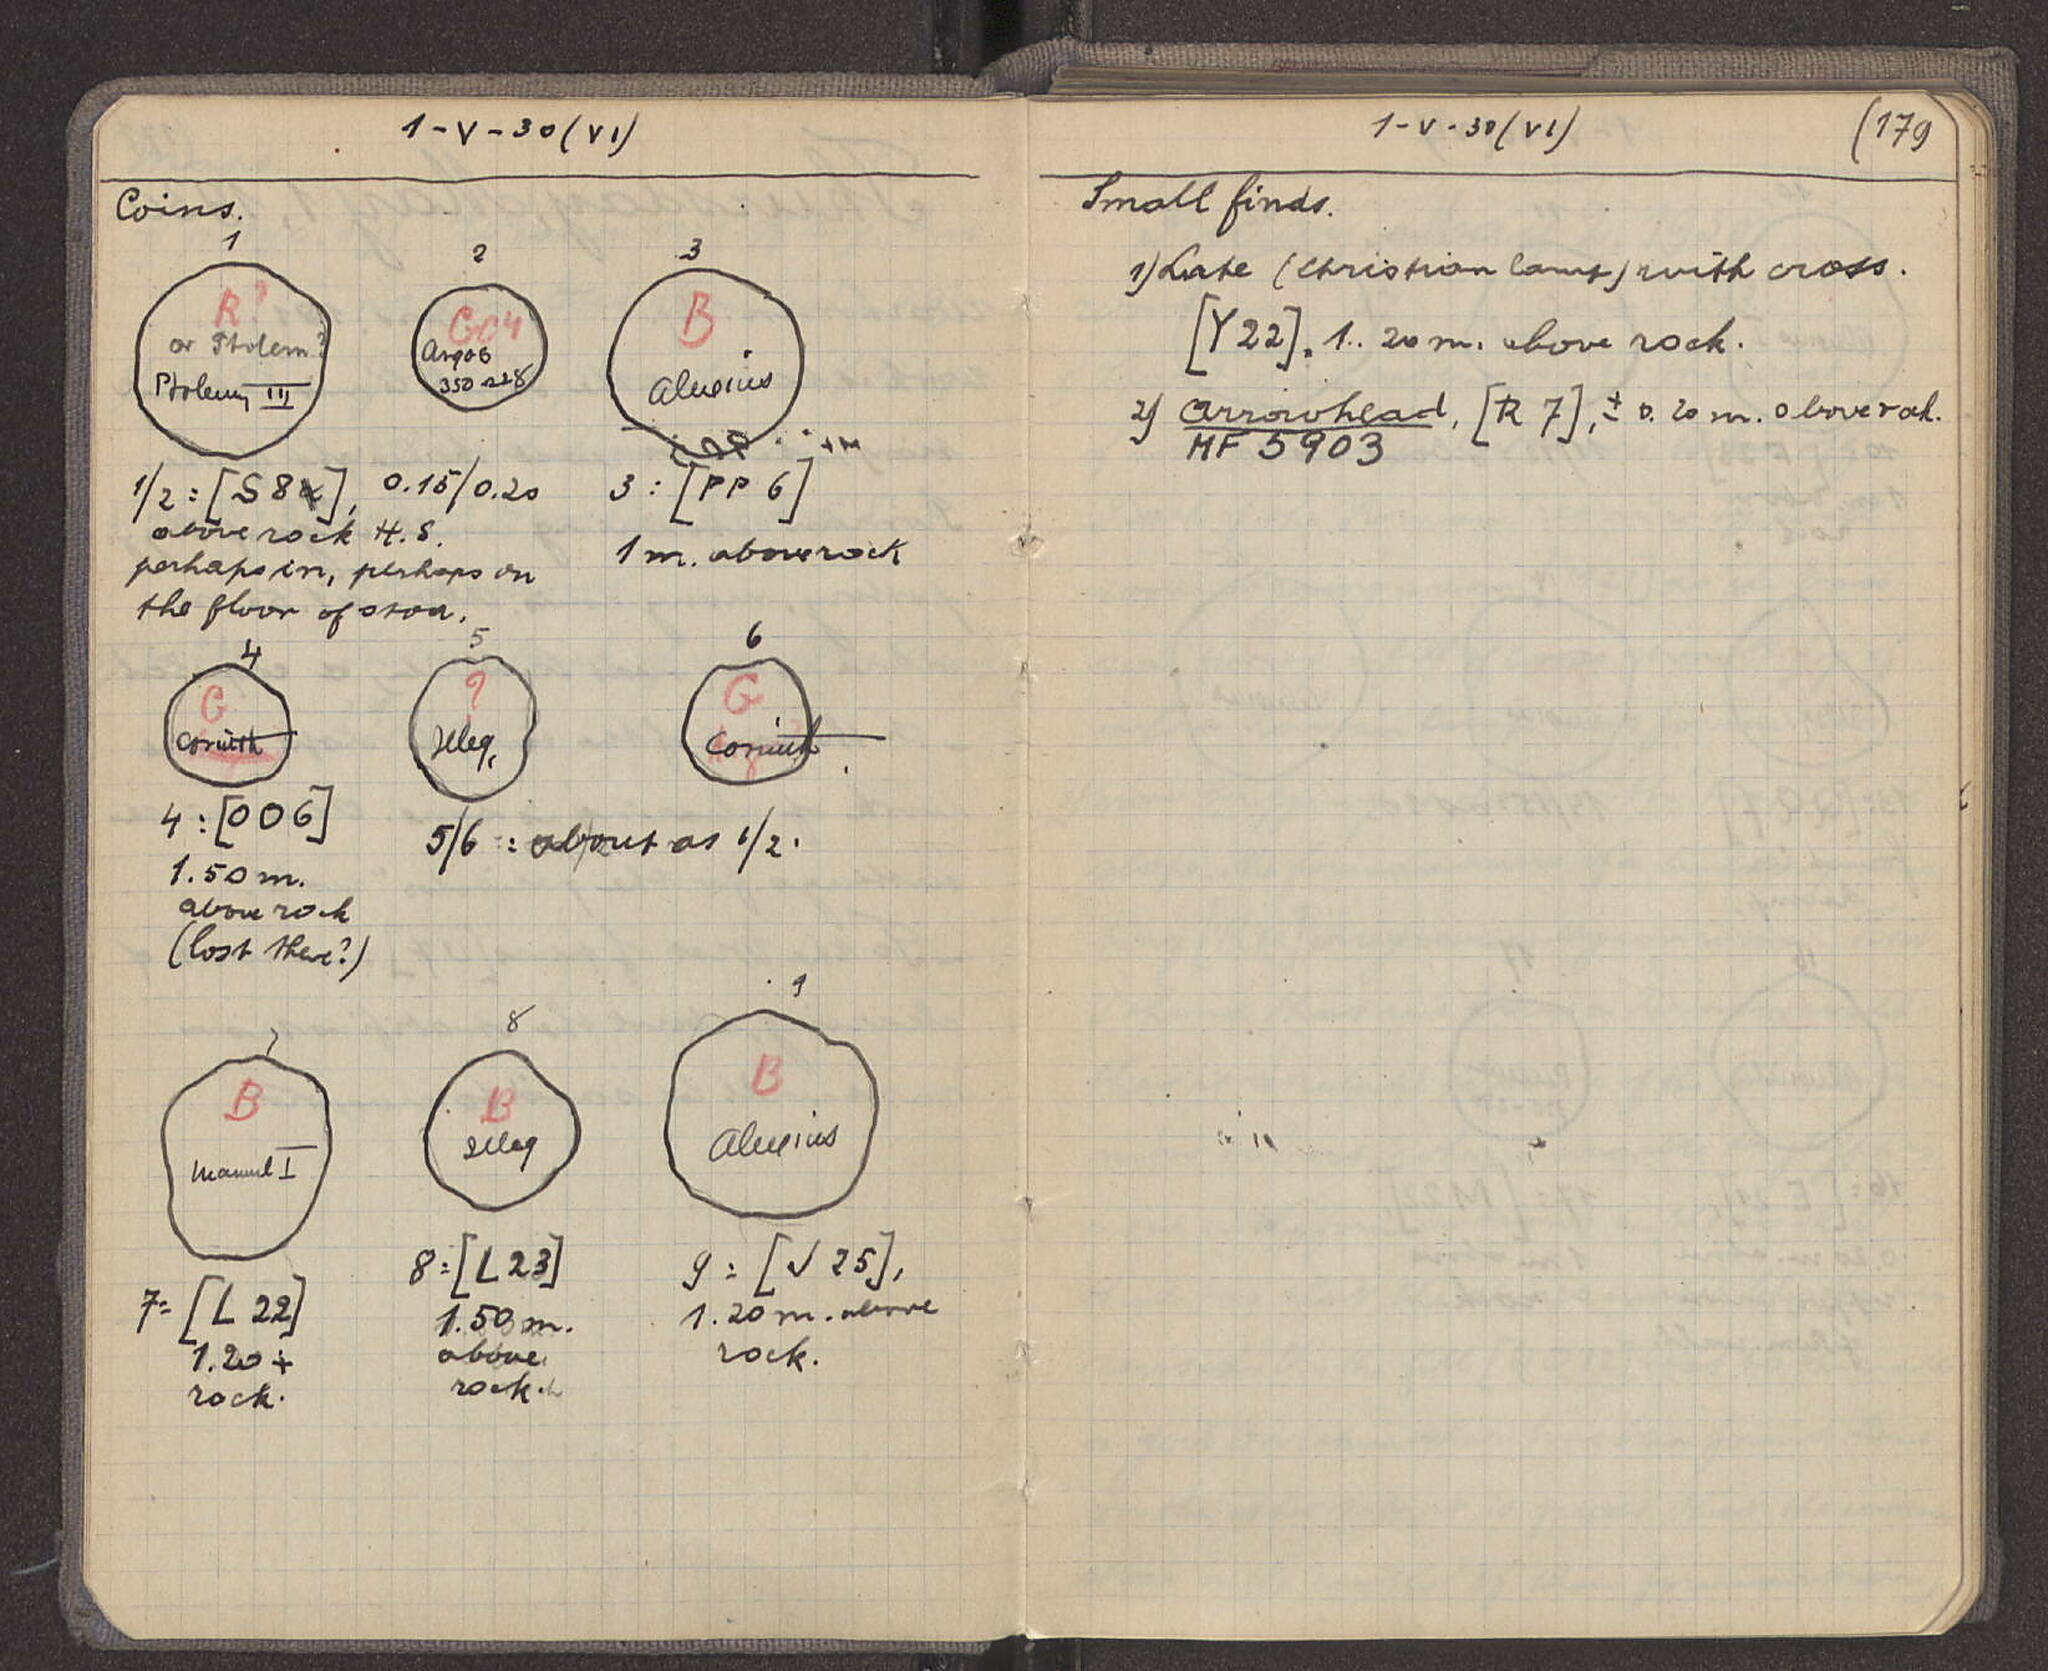 1-V-30 (VI)
Coins.
1
2
3
R?
or Ptolem?
Ptolemy III
GC4
Argos
350-228
B
Alexius
1/2 : [S 8], 0.15/0.20
above rock H.S.
perhaps in, perhaps on
the floor of stoa.
3 : [PP 6]
1 m. above rock
4
5
6
G
Corinth
?
Illeg.
G
Corinth
4 : [OO6]
1.50 m.
above rock
(lost there?)
5/6 : about as 1/2.
7
8
9
B
Manuel I
B
Illeg
B
Alexius
7= [L 22]
1.20 +
rock.
8= [L 23]
1.50 m.
above
rock.
9 = [V 25],
1.20 m. above
rock.
1-V-30 (VI)
(179
Small finds.
1) Late (Christian lamp) with cross.
[Y 22]. 1.20 m. above rock.
2) Arrowhead, [R 7], ± 0.20 m. above rock.
MF 5903